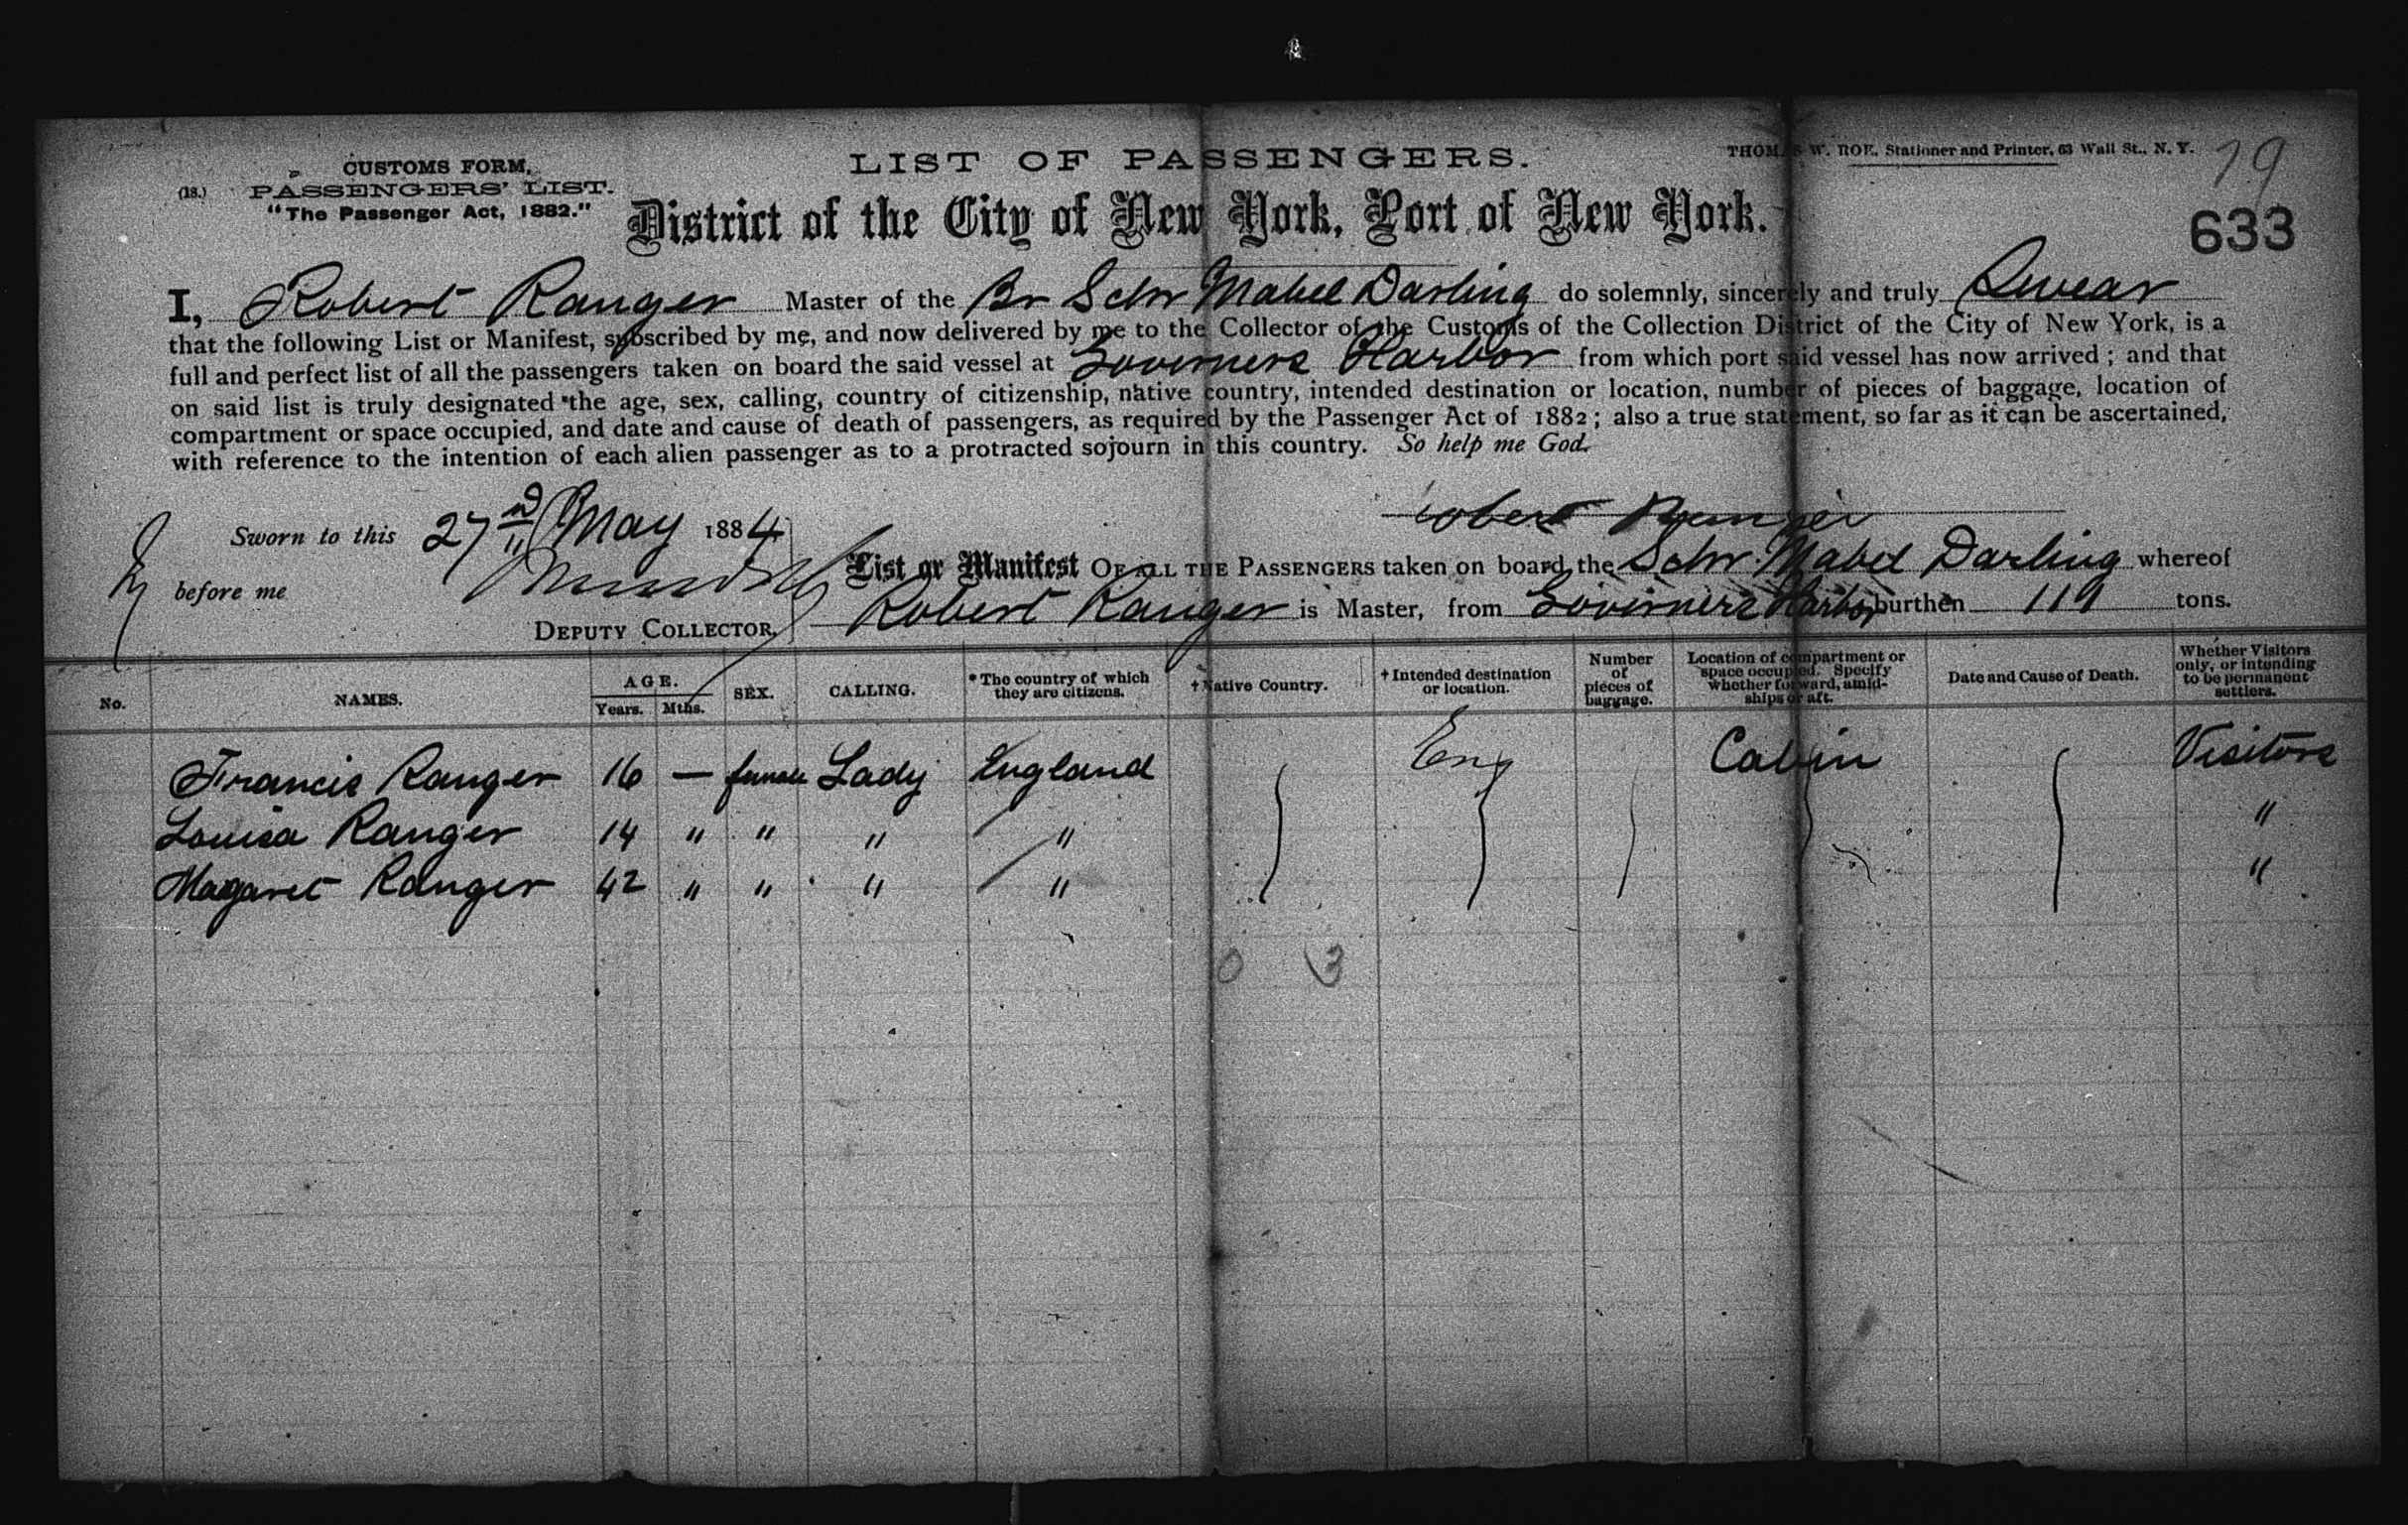 CUSTOMS FORM,
(18.) PASSENGERS' LIST.
"The Passenger Act, 1882."
LIST OF PASSENGERS.
THOMAS W. ROE, Stationer and Printer, 63 Wall St., N. Y.
79
District of the City of New York, Port of New York.
633
I, Robert Ranger Master of the Br Schr Mabel Darling do solemnly, sincerely and truly Swear
that the following List or Manifest, subscribed by me, and now delivered by me to the Collector of the Customs of the Collection District of the City of New York, is a
full and perfect list of all the passengers taken on board the said vessel at Governers Harbor from which port said vessel has now arrived; and that
on said list is truly designated the age, sex, calling, country of citizenship, native country, intended destination or location, number of pieces of baggage, location of
compartment or space occupied, and date and cause of death of passengers, as required by the Passenger Act of 1882; also a true statement, so far as it can be ascertained,
with reference to the intention of each alien passenger as to a protracted sojourn in this country. So help me God.
Robert Ranger
Sworn to this 27nd May 1884
before me
DEPUTY COLLECTOR.
List or Manifest OF ALL THE PASSENGERS taken on board the Schr. Mabel Darling whereof
Robert Ranger is Master, from Governers Harbor burthen 119 tons.
No. NAMES. AGE. Years. Mths. SEX. CALLING. *The country of which they are citizens. †Native Country. †Intended destination or location. Number of pieces of baggage. Location of compartment or space occupied. Specify whether forward, amidships or aft. Date and Cause of Death. Whether Visitors only, or intending to be permanent settlers.
Francis Ranger 16 — female Lady England Eng Cabin Visitors
Louisa Ranger 14 " " " " "
Magaret Ranger 42 " " " " "
0 3